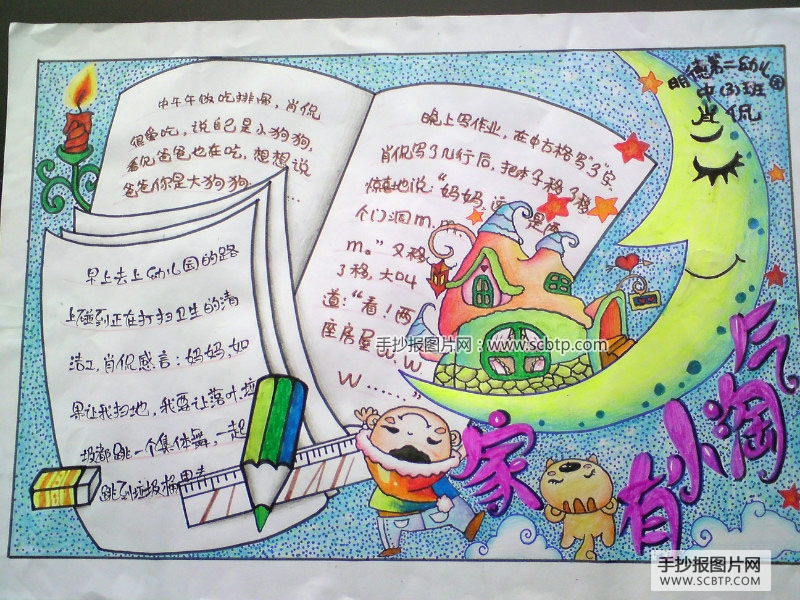 明德第二幼儿园
中(3)班
肖侃
中午午饭吃排骨,肖侃
很爱吃,说自己是小狗狗,
看见爸爸也在吃,想想说
爸爸你是大狗狗……
晚上写作业,在田方格写"3"字,
肖侃写了几行后,把本子移了移
惊喜地说:"妈妈,这是两
个门洞m.m
m。"又移
了移,大叫
道:"看!两
座房屋W.W
W……"
早上去上幼儿园的路
上碰到正在打扫卫生的清
洁工,肖侃感言:妈妈,如
果让我扫地,我要让落叶垃
圾都跳一个集体舞,一起
跳到垃圾桶里去
家有小淘气
手抄报图片网:www.scbtp.com
手抄报图片网
WWW.SCBTP.COM